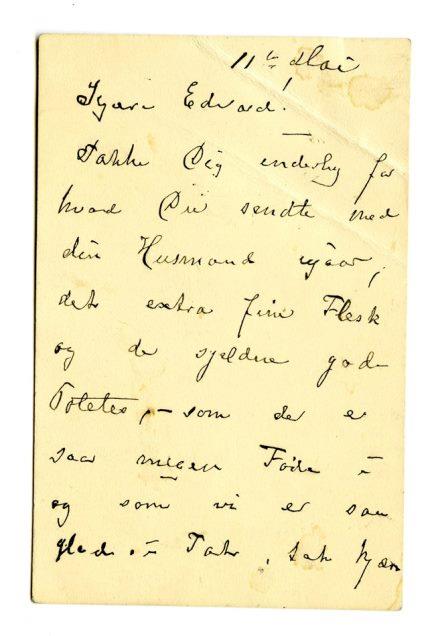 11te Mai
Kjære Edvard!
Takke Dig inderlig for
hvad Du sendte med
din Husmand igaar,
det extra fine Flesk
og de sjeldne gode
Potetes, – som der er
saa megen Føde i
og som vi er saa
glad i – Tak, tak kjære